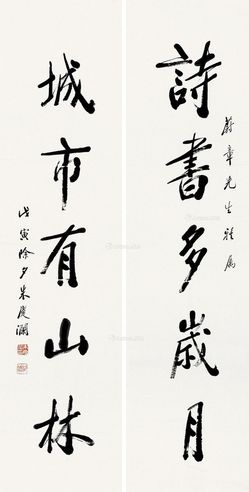 詩書多歲月
蔚章先生雅屬
城市有山林
戊寅除夕朱慶瀾